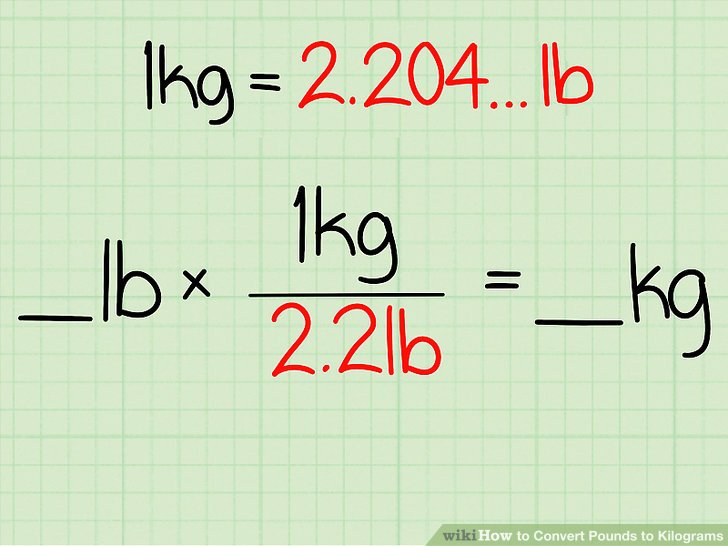 1kg = 2.204... lb
__lb × 1kg = __kg
2.2lb
wikiHow to Convert Pounds to Kilograms